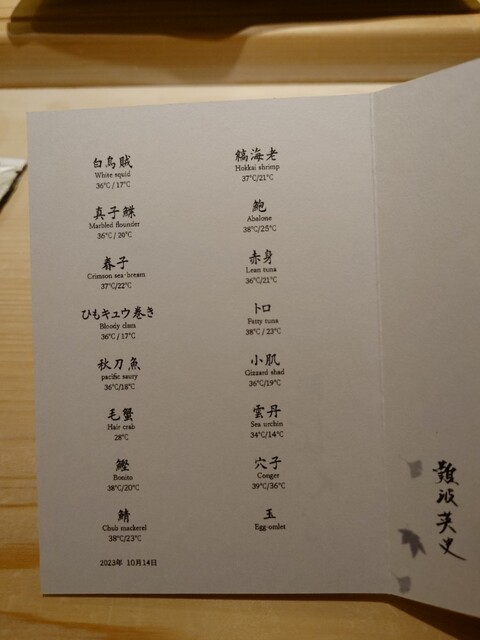 白烏賊
White squid
36℃ / 17℃
真子鰈
Marbled flounder
36℃ / 20℃
春子
Crimson sea-bream
37℃/22℃
ひもキュウ巻き
Bloody clara
36℃ / 17℃
秋刀魚
pacific saury
36℃/18℃
毛蟹
Hair crab
28℃
鰹
Bonito
38℃/20℃
鯖
Chub mackerel
38℃/23℃
2023年 10月14日
縞海老
Hokkai shrimp
37℃/21℃
鮑
Abalone
38℃/25℃
赤身
Lean tuna
36℃/21℃
トロ
Fatty tuna
38℃ / 23℃
小肌
Gizzard shad
36℃/19℃
雲丹
Sea urchin
34℃/14℃
穴子
Conger
39℃/36℃
玉
Egg-omlet
難波英史